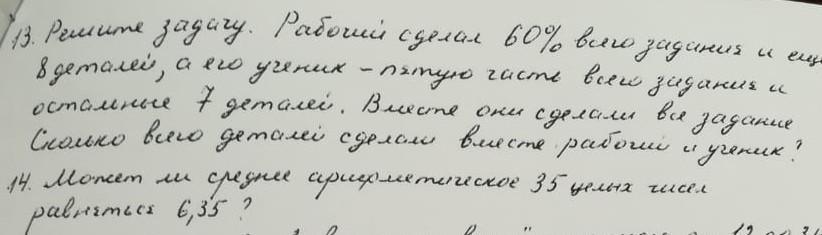 13. Решите задачу. Рабочий сделал 60% всего задания и ещё
8 деталей, а его ученик – пятую часть всего задания и
остальные 7 деталей. Вместе они сделали всё задание
Сколько всего деталей сделали вместе рабочий и ученик?
14. Может ли среднее арифметическое 35 целых чисел
равняться 6,35?